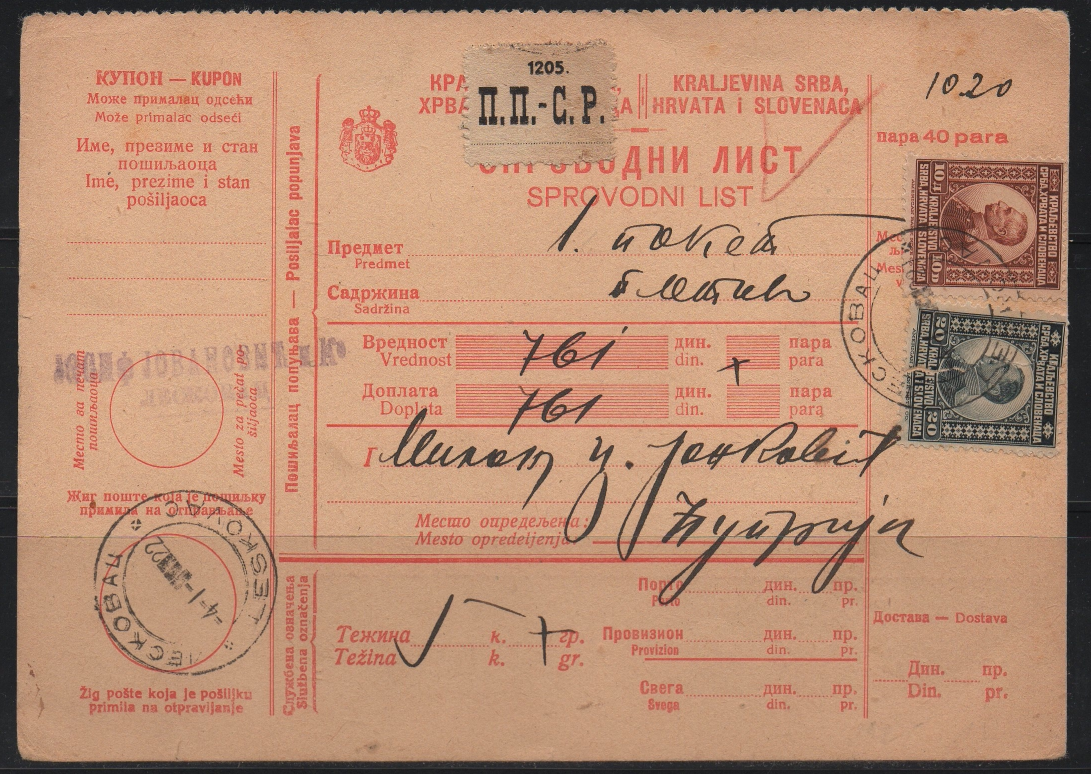 КУПОН — KUPON
Може прималац одсећи
Može primalac odseći
Име, презиме и стан
пошиљаоца
Ime, prezime i stan
pošiljaoca
Место за печат
пошиљаоца
Mesto za pečat po-
šiljaoca
Жиг поште која је пошиљку
примила на отправљање
ЛЕСКОВАЦ
LESKOVAC
4-I-
22
Žig pošte koja je pošiljku
primila na otpravljanje
Пошиљалац попуњава — Pošiljalac popunjava
1205.
П.П.-С.Р.
KRALJEVINA SRBA,
HRVATA i SLOVENACA
СПРОВОДНИ ЛИСТ
SPROVODNI LIST
Предмет
Predmet
1. пакет
Садржина
Sadržina
Вредност
Vrednost
761
дин.
din.
+
пара
para
Доплата
Doplata
761
дин.
din.
пара
para
Г
Милан Ј. Јанковић
Место опредељена:
Mesto opredeljenja:
Ћуприја
Службена означења
Službena označenja
Тежина
Težina
5
к.
k.
гр.
gr.
Порто
Porto
дин.
din.
пр.
pr.
Провизион
Provizion
дин.
din.
пр.
pr.
Свега
Svega
дин.
din.
пр.
pr.
1020
пара 40 para
10 Д
КРАЉЕВСТВО
СРБА, ХРВАТА И СЛОВЕНАЦА
KRALJEVSTVO
SRBA, HRVATA I SLOVENACA
10 D
20
КРАЉЕВСТВО
СРБА, ХРВАТА И СЛОВЕНАЦА
KRALJEVSTVO
SRBA, HRVATA I SLOVENACA
20
ЛЕСКОВАЦ
Достава — Dostava
Дин.
пр.
Din.
pr.